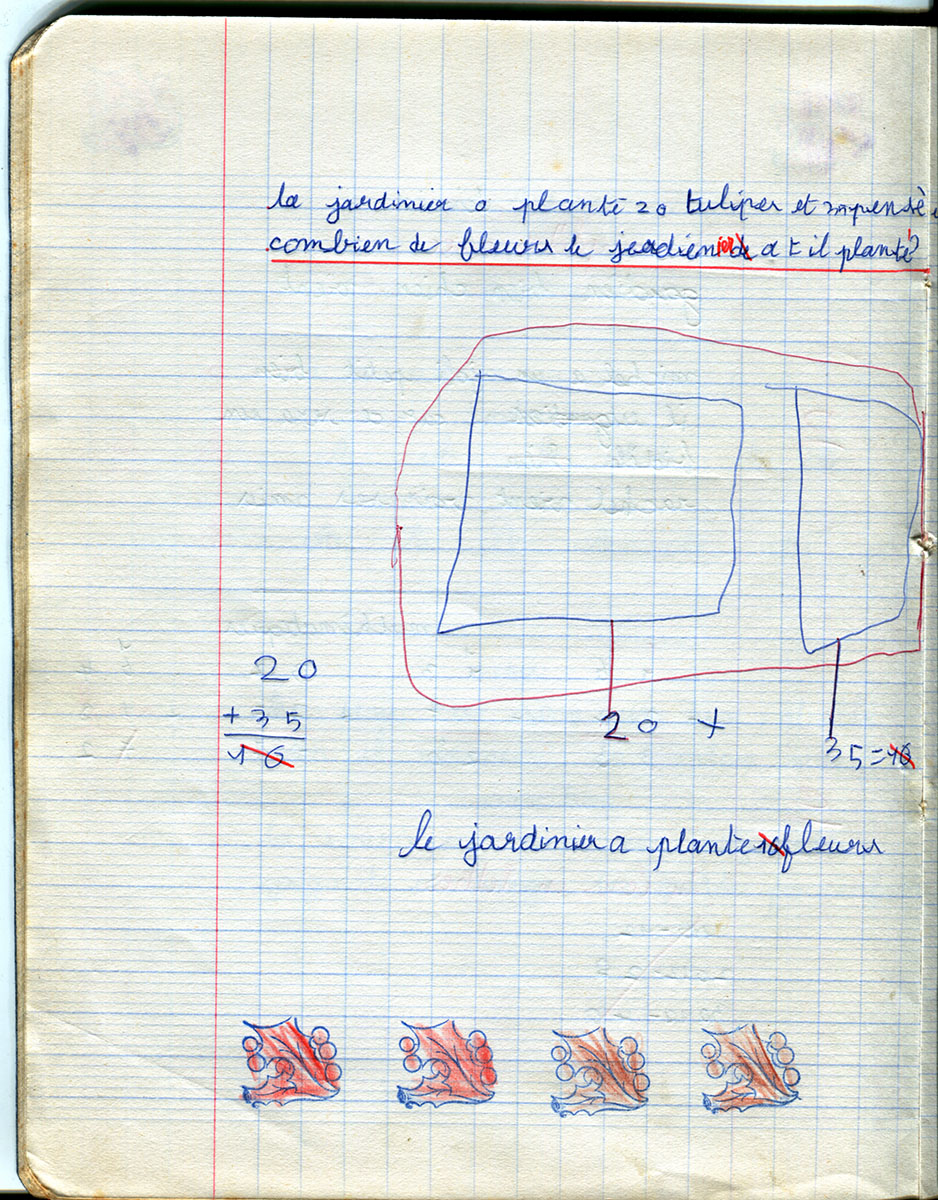 le jardinier a planté 20 tulipes et
combien de fleurs le jardinier a t il planté?
20
+ 35
10
20 +
35 = 10
le jardinier a plante 10 fleurs